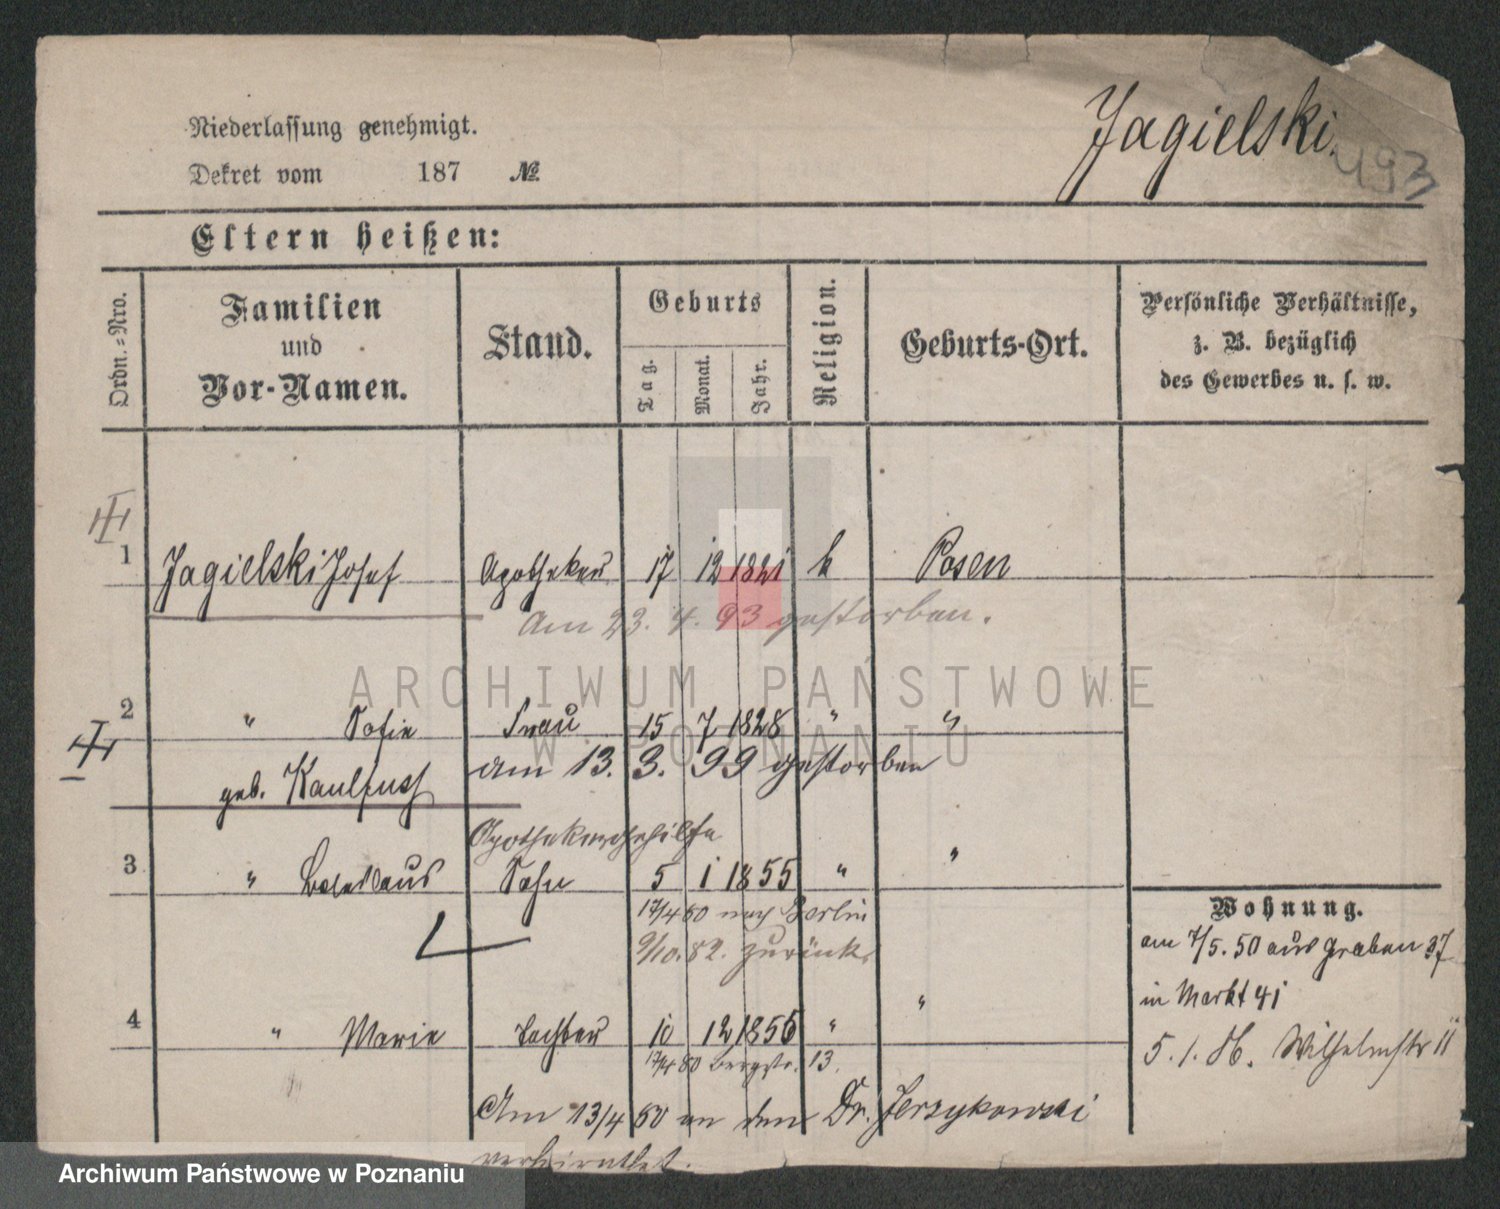 Jagielski.
493
Niederlassung genehmigt.
Dekret vom 187 №
Eltern heißen:
Ordn.-Nro.
Familien
und
Vor-Namen.
Stand.
Geburts
Tag.
Monat.
Jahr.
Religion.
Geburts-Ort.
Persönliche Verhältnisse,
z. B. bezüglich
des Gewerbes u. s. w.
1 Jagielski Josef Apotheker 17 12 1821 k Posen
Am 23. 4. 93 gestorben.
ARCHIWUM PAŃSTWOWE
W POZNANIU
2 " Sofie Frau 15 7 1828 " "
geb. Kaulfuss am 13. 3. 99 gestorben
Apothekergehilfe
3 " Boleslaus Sohn 5 1 1855 " "
17/4 80 nach Berlin
9/10. 82. zurück.
Wohnung.
am 7/5. 80 aus Graben 37
in Markt 41
5. 1. Wilhelmstr 11
4 " Marie Tochter 10 12 1856 " "
17/4 80 Bergstr. 13.
Am 13/4 80 an den Dr. Jerzykowski
verheirathet.
Archiwum Państwowe w Poznaniu